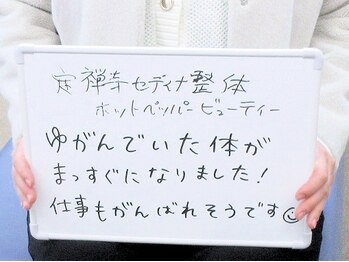 定禅寺セディナ整体
ホットペッパービューティー
ゆがんでいた体が
まっすぐになりました!
仕事もがんばれそうです